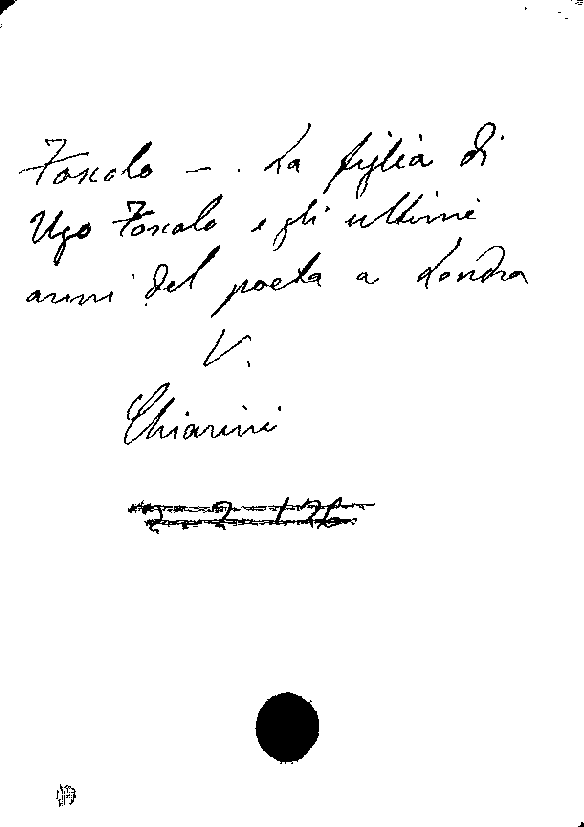 Foscolo - . La figlia di
Ugo Foscolo e gli ultimi
anni del poeta a Londra
V.
Chiarini